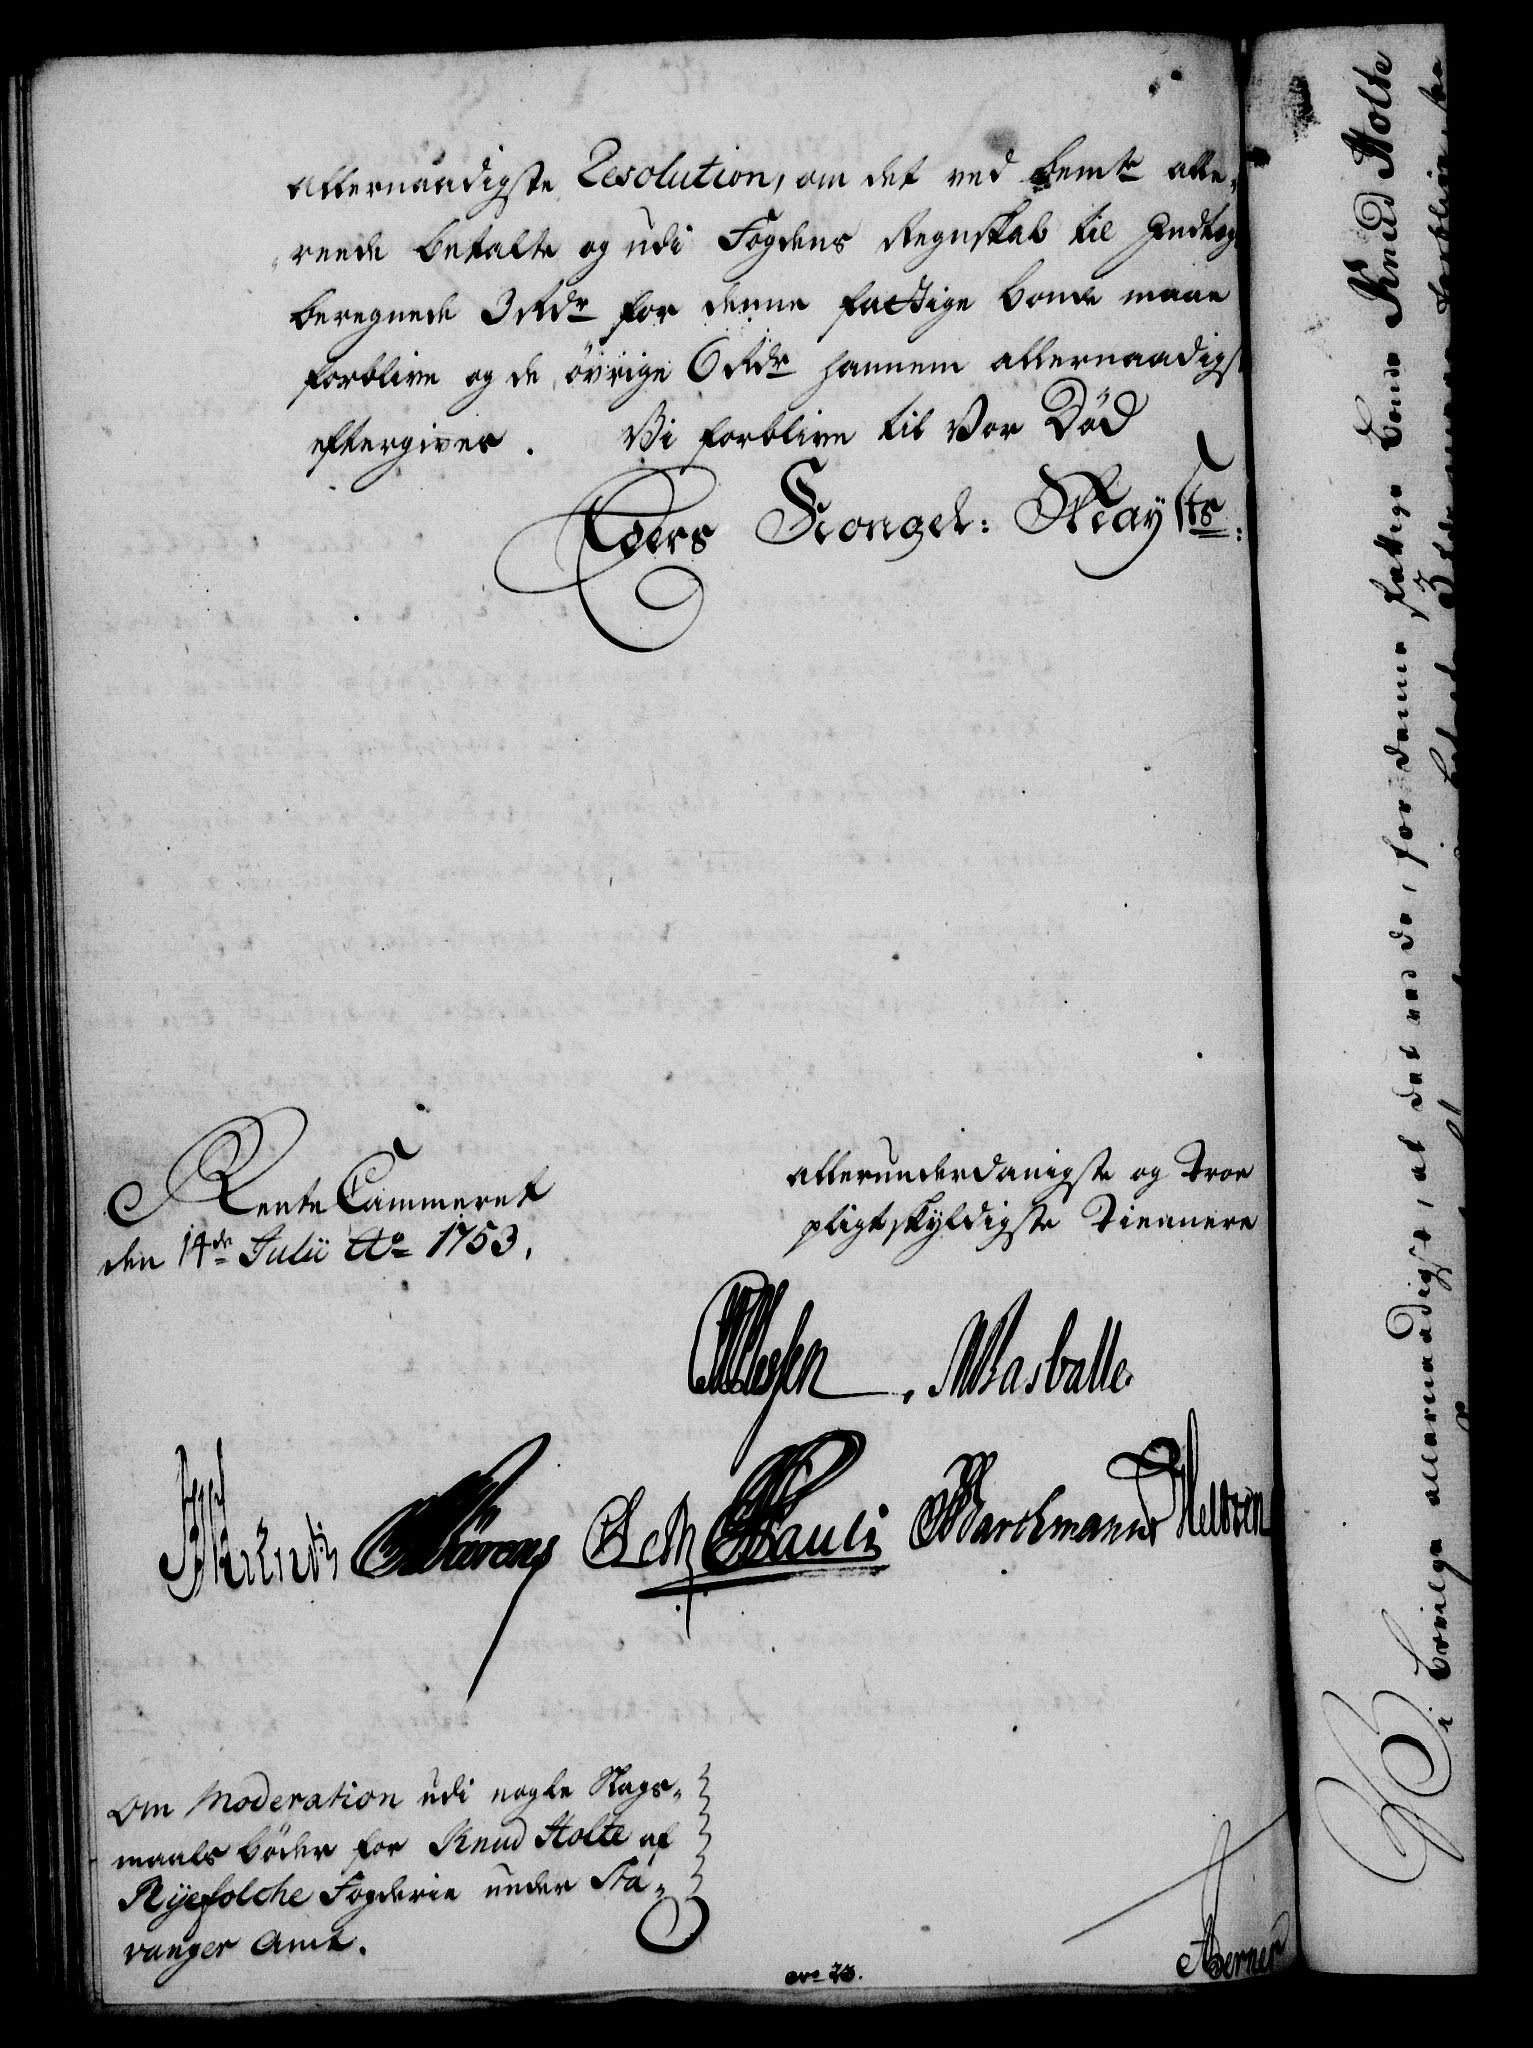 allernaadigste Resolution, om det ved bemte alle-
reede betalte og udi Fogdens Regnskab til Indtægt
beregnede 3 Rdr for denne fattige Bonde maae
forblive og de övrige 6 Rdr hannem allernaadigst
eftergives. Vi forblive til Vor Död
Eders Kongel: Mayts:
Rente Cammeret
den 14de Julii Ao 1753.
allerunderdanigste og Troe
pligtskyldigste Tienere
Rasballe.
Pauli Barchmann Helverin
Om Moderation udi nogle Slags-
maals böder for Knud Holte af
Ryefolche Fogderie under Sta-
vanger Amt.
No 23.
Berner
Vi bevilge allernaadigst, at det ved de, for denne fattige Bonde Knud Holte